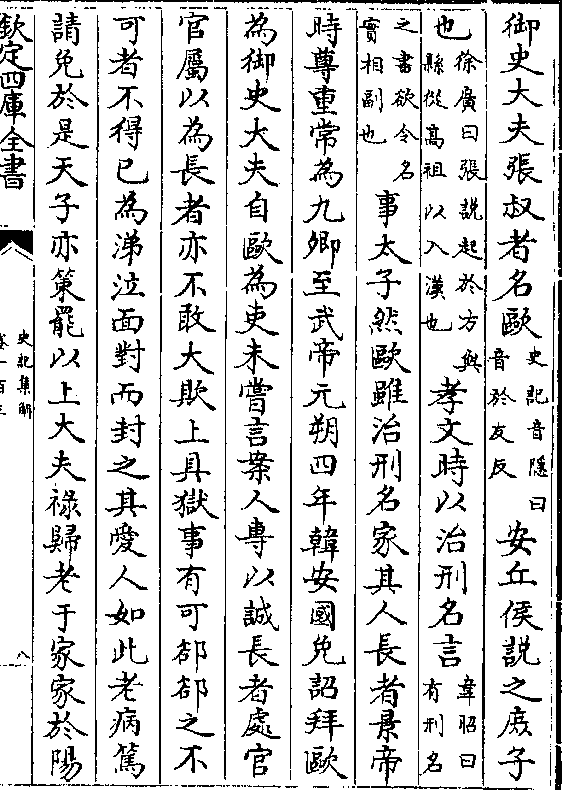 御史大夫張叔者名歐史記音隱曰音於友反安丘侯說之庶子
也徐廣曰張說起於方與縣從高祖以入漢也孝文時以治刑名言韋昭曰有刑名
之書欲令名實相副也事太子然歐雖治刑名家其人長者景帝
時尊重常為九卿至武帝元朔四年韓安國免詔拜歐
為御史大夫自歐為吏未嘗言案人專以誠長者處官
官屬以為長者亦不敢大欺上具獄事有可郤郤之不
可者不得已為涕泣面對而封之其愛人如此老病篤
請免於是天子亦策罷以上大夫祿歸老于家家於陽
欽定四庫全書
史記集解
卷一百三
八